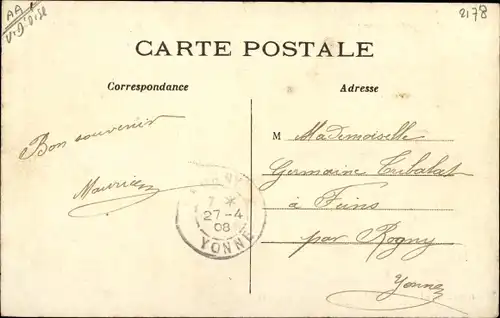 AA
V+D'Oise
2178
CARTE POSTALE
Correspondance
Adresse
Bon souvenir
M Mademoiselle
Germaine Tribalat
à Feins
par Rogny
Yonne
7 *
27-4
08
YONNE